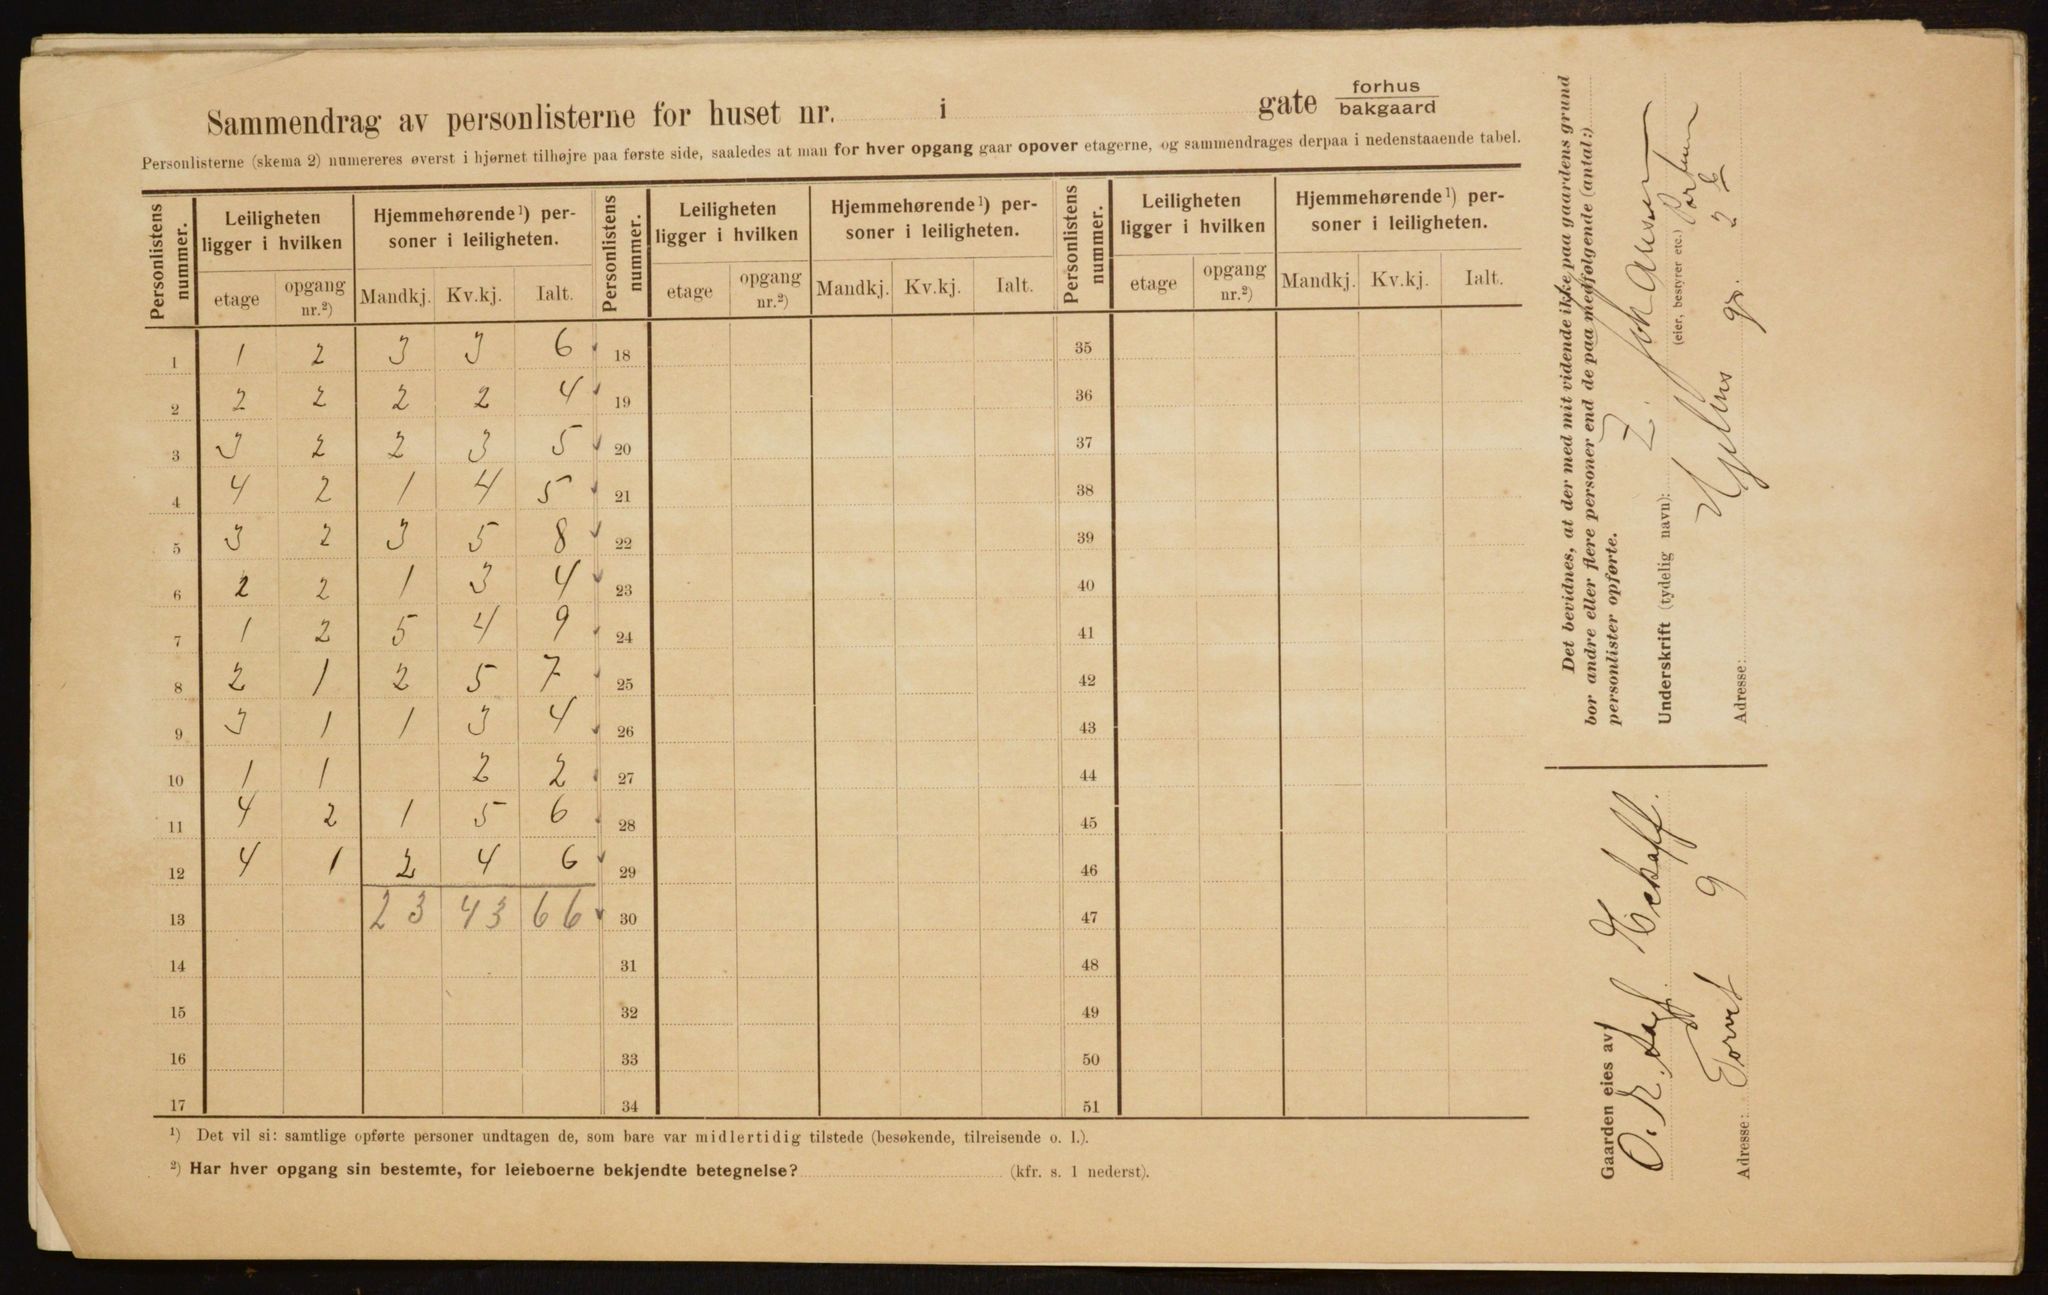 Sammendrag av personlisterne for huset nr. i gate forhus bakgaard
Personlisterne (skema 2) numereres øverst i hjørnet tilhøjre paa første side, saaledes at man for hver opgang gaar opover etagerne, og sammendrages derpaa i nedenstaaende tabel.
Personlistens nummer. Leiligheten ligger i hvilken Hjemmehørende¹) personer i leiligheten. Personlistens nummer. Leiligheten ligger i hvilken Hjemmehørende¹) personer i leiligheten. Personlistens nummer. Leiligheten ligger i hvilken Hjemmehørende¹) personer i leiligheten.
etage opgang nr.²) Mandkj. Kv.kj. Ialt. etage opgang nr.²) Mandkj. Kv.kj. Ialt. etage opgang nr.²) Mandkj. Kv.kj. Ialt.
1 1 2 3 3 6 18 35
2 2 2 2 2 4 19 36
3 3 2 2 3 5 20 37
4 4 2 1 4 5 21 38
5 3 2 3 5 8 22 39
6 2 2 1 3 4 23 40
7 1 2 5 4 9 24 41
8 2 1 2 5 7 25 42
9 3 1 1 3 4 26 43
10 1 1 2 2 27 44
11 4 2 1 5 6 28 45
12 4 1 2 4 6 29 46
13 23 43 66 30 47
14 31 48
15 32 49
16 33 50
17 34 51
¹) Det vil si: samtlige opførte personer undtagen de, som bare var midlertidig tilstede (besøkende, tilreisende o. l.).
²) Har hver opgang sin bestemte, for leieboerne bekjendte betegnelse? (kfr. s. 1 nederst).
Det bevidnes, at der med mit vidende ikke paa gaardens grund
bor andre eller flere personer end de paa medfølgende (antal:)
personlister opførte.
Underskrift (tydelig navn): Johansen
(eier, bestyrer etc.)
Adresse: gr. 2 b
Gaarden eies av
O. R.
Adresse: Torvet 9